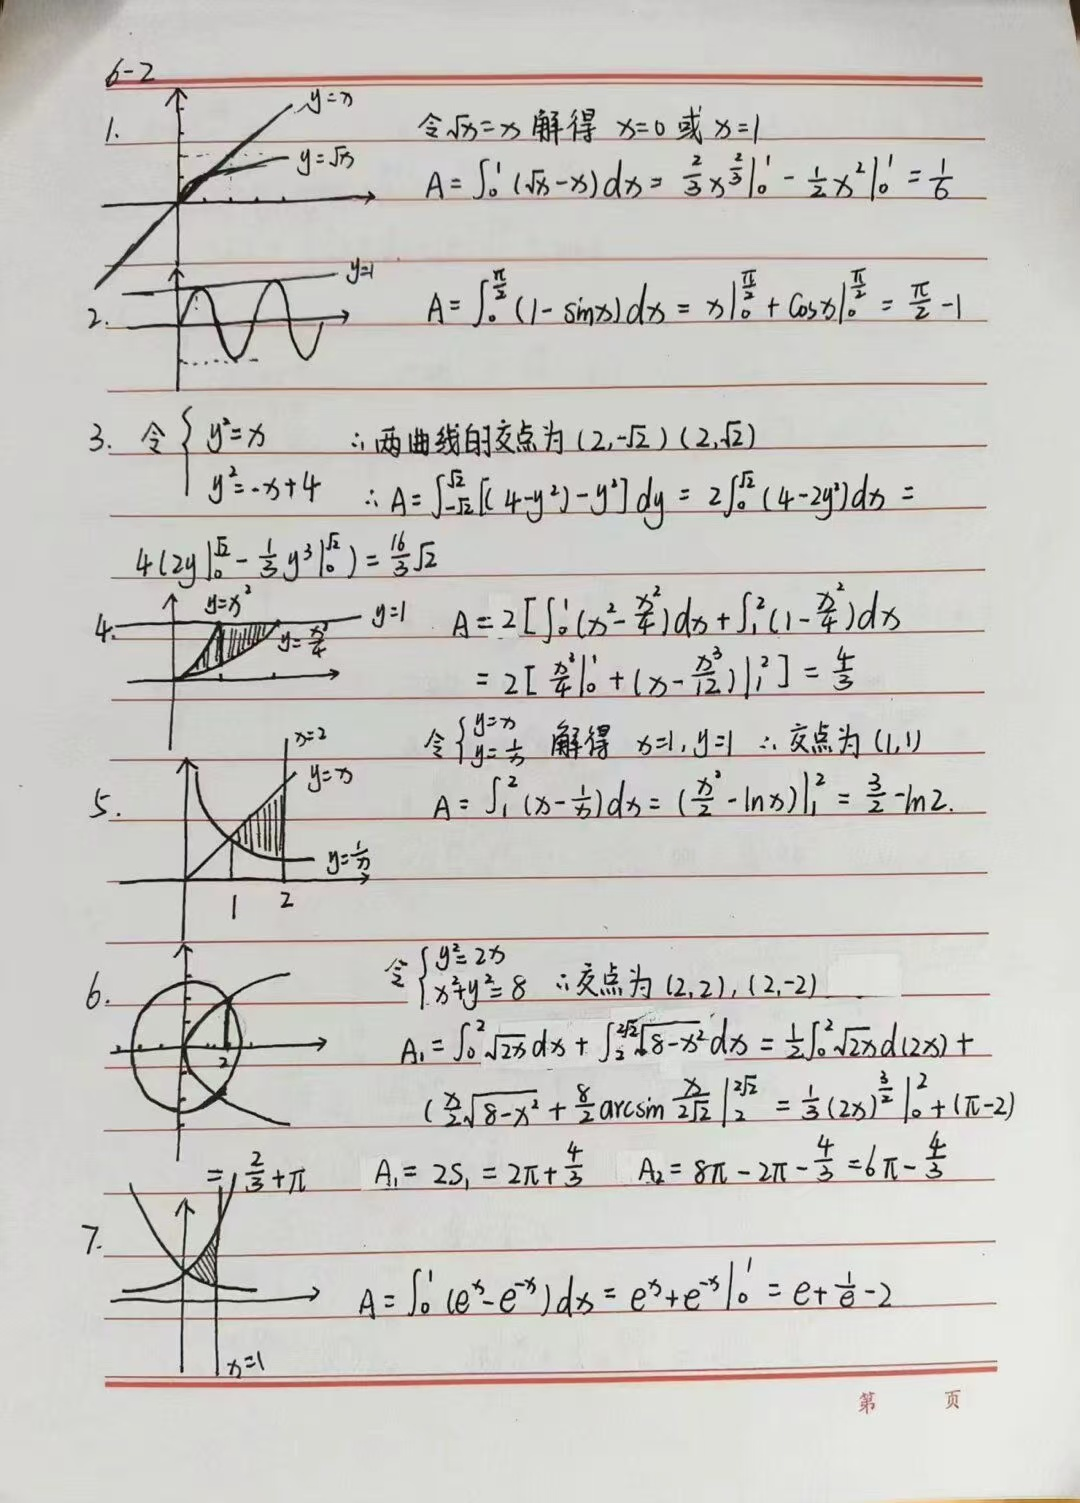 6-2
1. y=x y=√x 令√x=x 解得 x=0 或 x=1
A=∫₀¹(√x-x)dx= 2/3 x^(2/3)|₀¹ - 1/2 x²|₀¹ = 1/6
2. y=1 A=∫₀^(π/2)(1-sinx)dx = x|₀^(π/2) + cosx|₀^(π/2) = π/2 -1
3. 令 { y²=x ∴两曲线的交点为(2,-√2)(2,√2)
y²=-x+4 ∴A=∫_(-√2)^(√2)[(4-y²)-y²]dy = 2∫₀^(√2)(4-2y²)dx =
4(2y|₀^(√2) - 1/3 y³|₀^(√2)) = 16/3 √2
4. y=x² y=1 y=x²/4 A=2[∫₀¹(x²-x²/4)dx+∫₁²(1-x²/4)dx
=2[x³/4|₀¹+(x-x³/12)|₁²] = 4/3
5. x=2 y=x y=1/x 1 2 令{y=x y=1/x 解得 x=1,y=1 ∴交点为(1,1)
A=∫₁²(x-1/x)dx=(x²/2-lnx)|₁²=3/2-ln2.
6. 2 令{y²=2x x²+y²=8 ∴交点为(2,2),(2,-2)
A₁=∫₀²√2x dx+∫₂^(2√2)√8-x² dx=1/2∫₀²√2x d(2x)+
(x/2 √8-x² + 8/2 arcsin x/2√2 |₂^(2√2) = 1/3(2x)^(3/2)|₀²+(π-2)
=2/3+π A₁=2S₁=2π+4/3 A₂=8π-2π-4/3=6π-4/3
7. x=1 A=∫₀¹(eˣ-e⁻ˣ)dx=eˣ+e⁻ˣ|₀¹=e+1/e-2
第 页